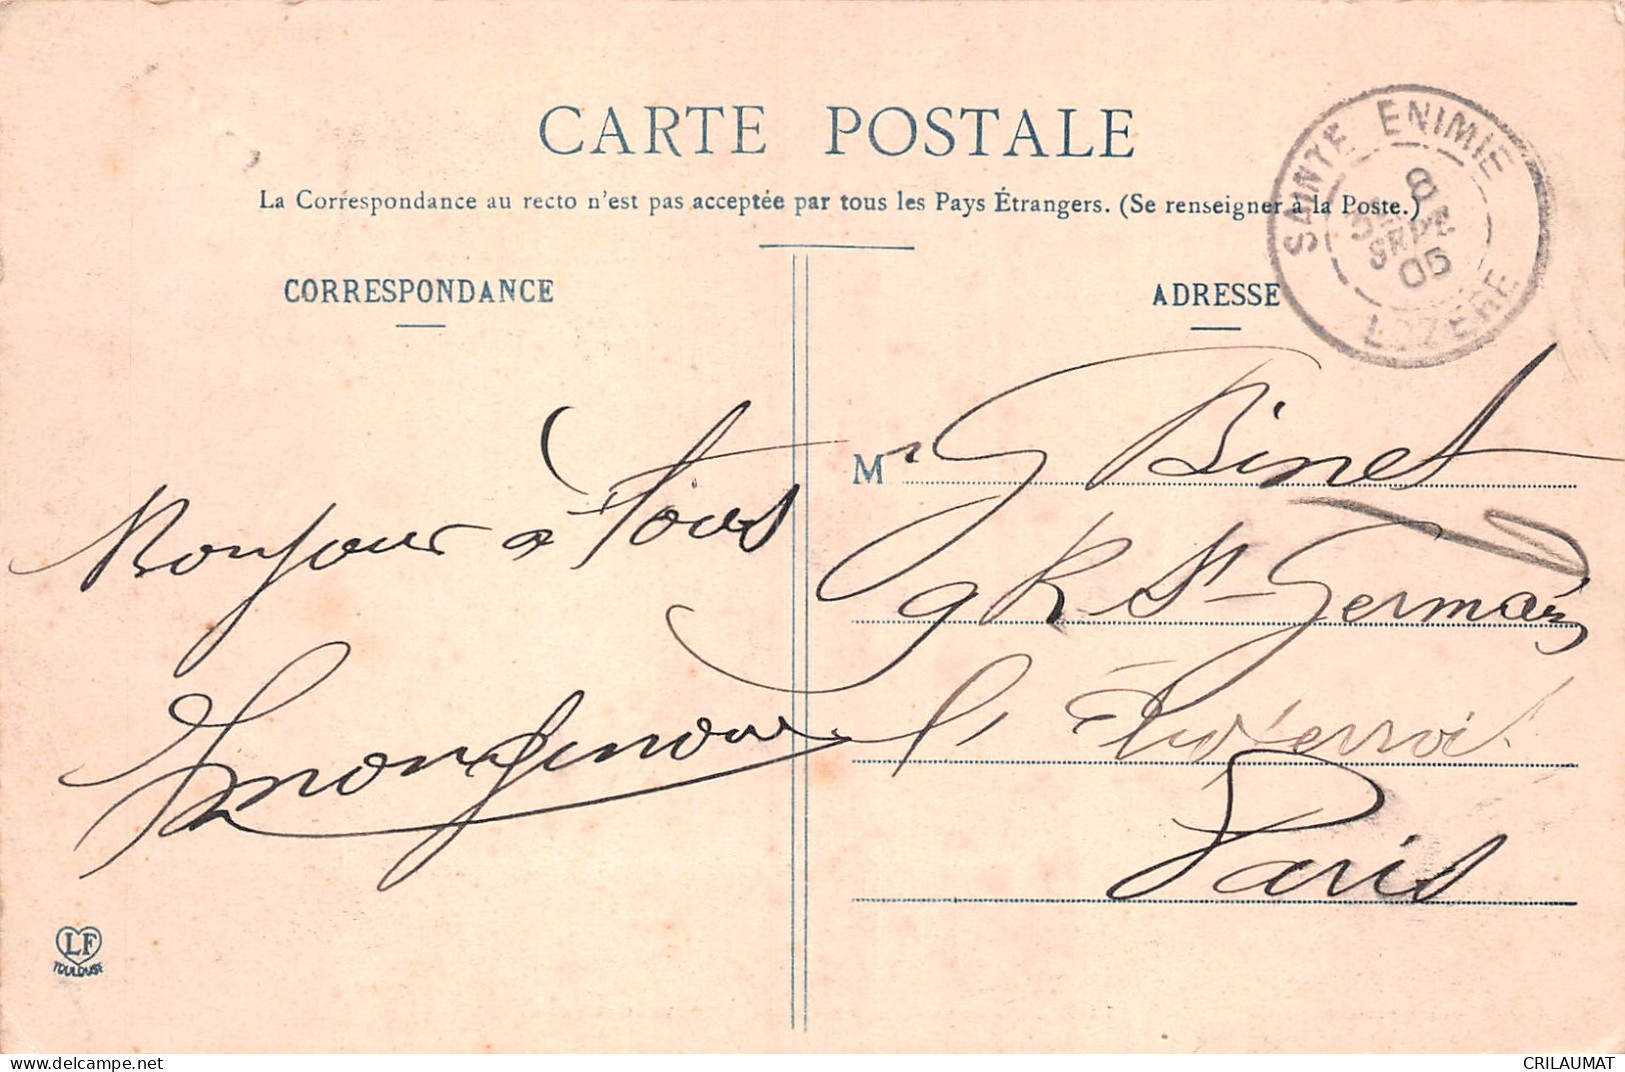 CARTE POSTALE
La Correspondance au recto n'est pas acceptée par tous les Pays Étrangers. (Se renseigner à la Poste.)
CORRESPONDANCE
ADRESSE
SAINTE ENIMIE
8
SEPT
05
LOZÈRE
Bonjour à tous
Mr G Binet
9 R St-Germain
l'Auxerrois
Paris
LF
TOULOUSE
www.delcampe.net
CRILAUMAT